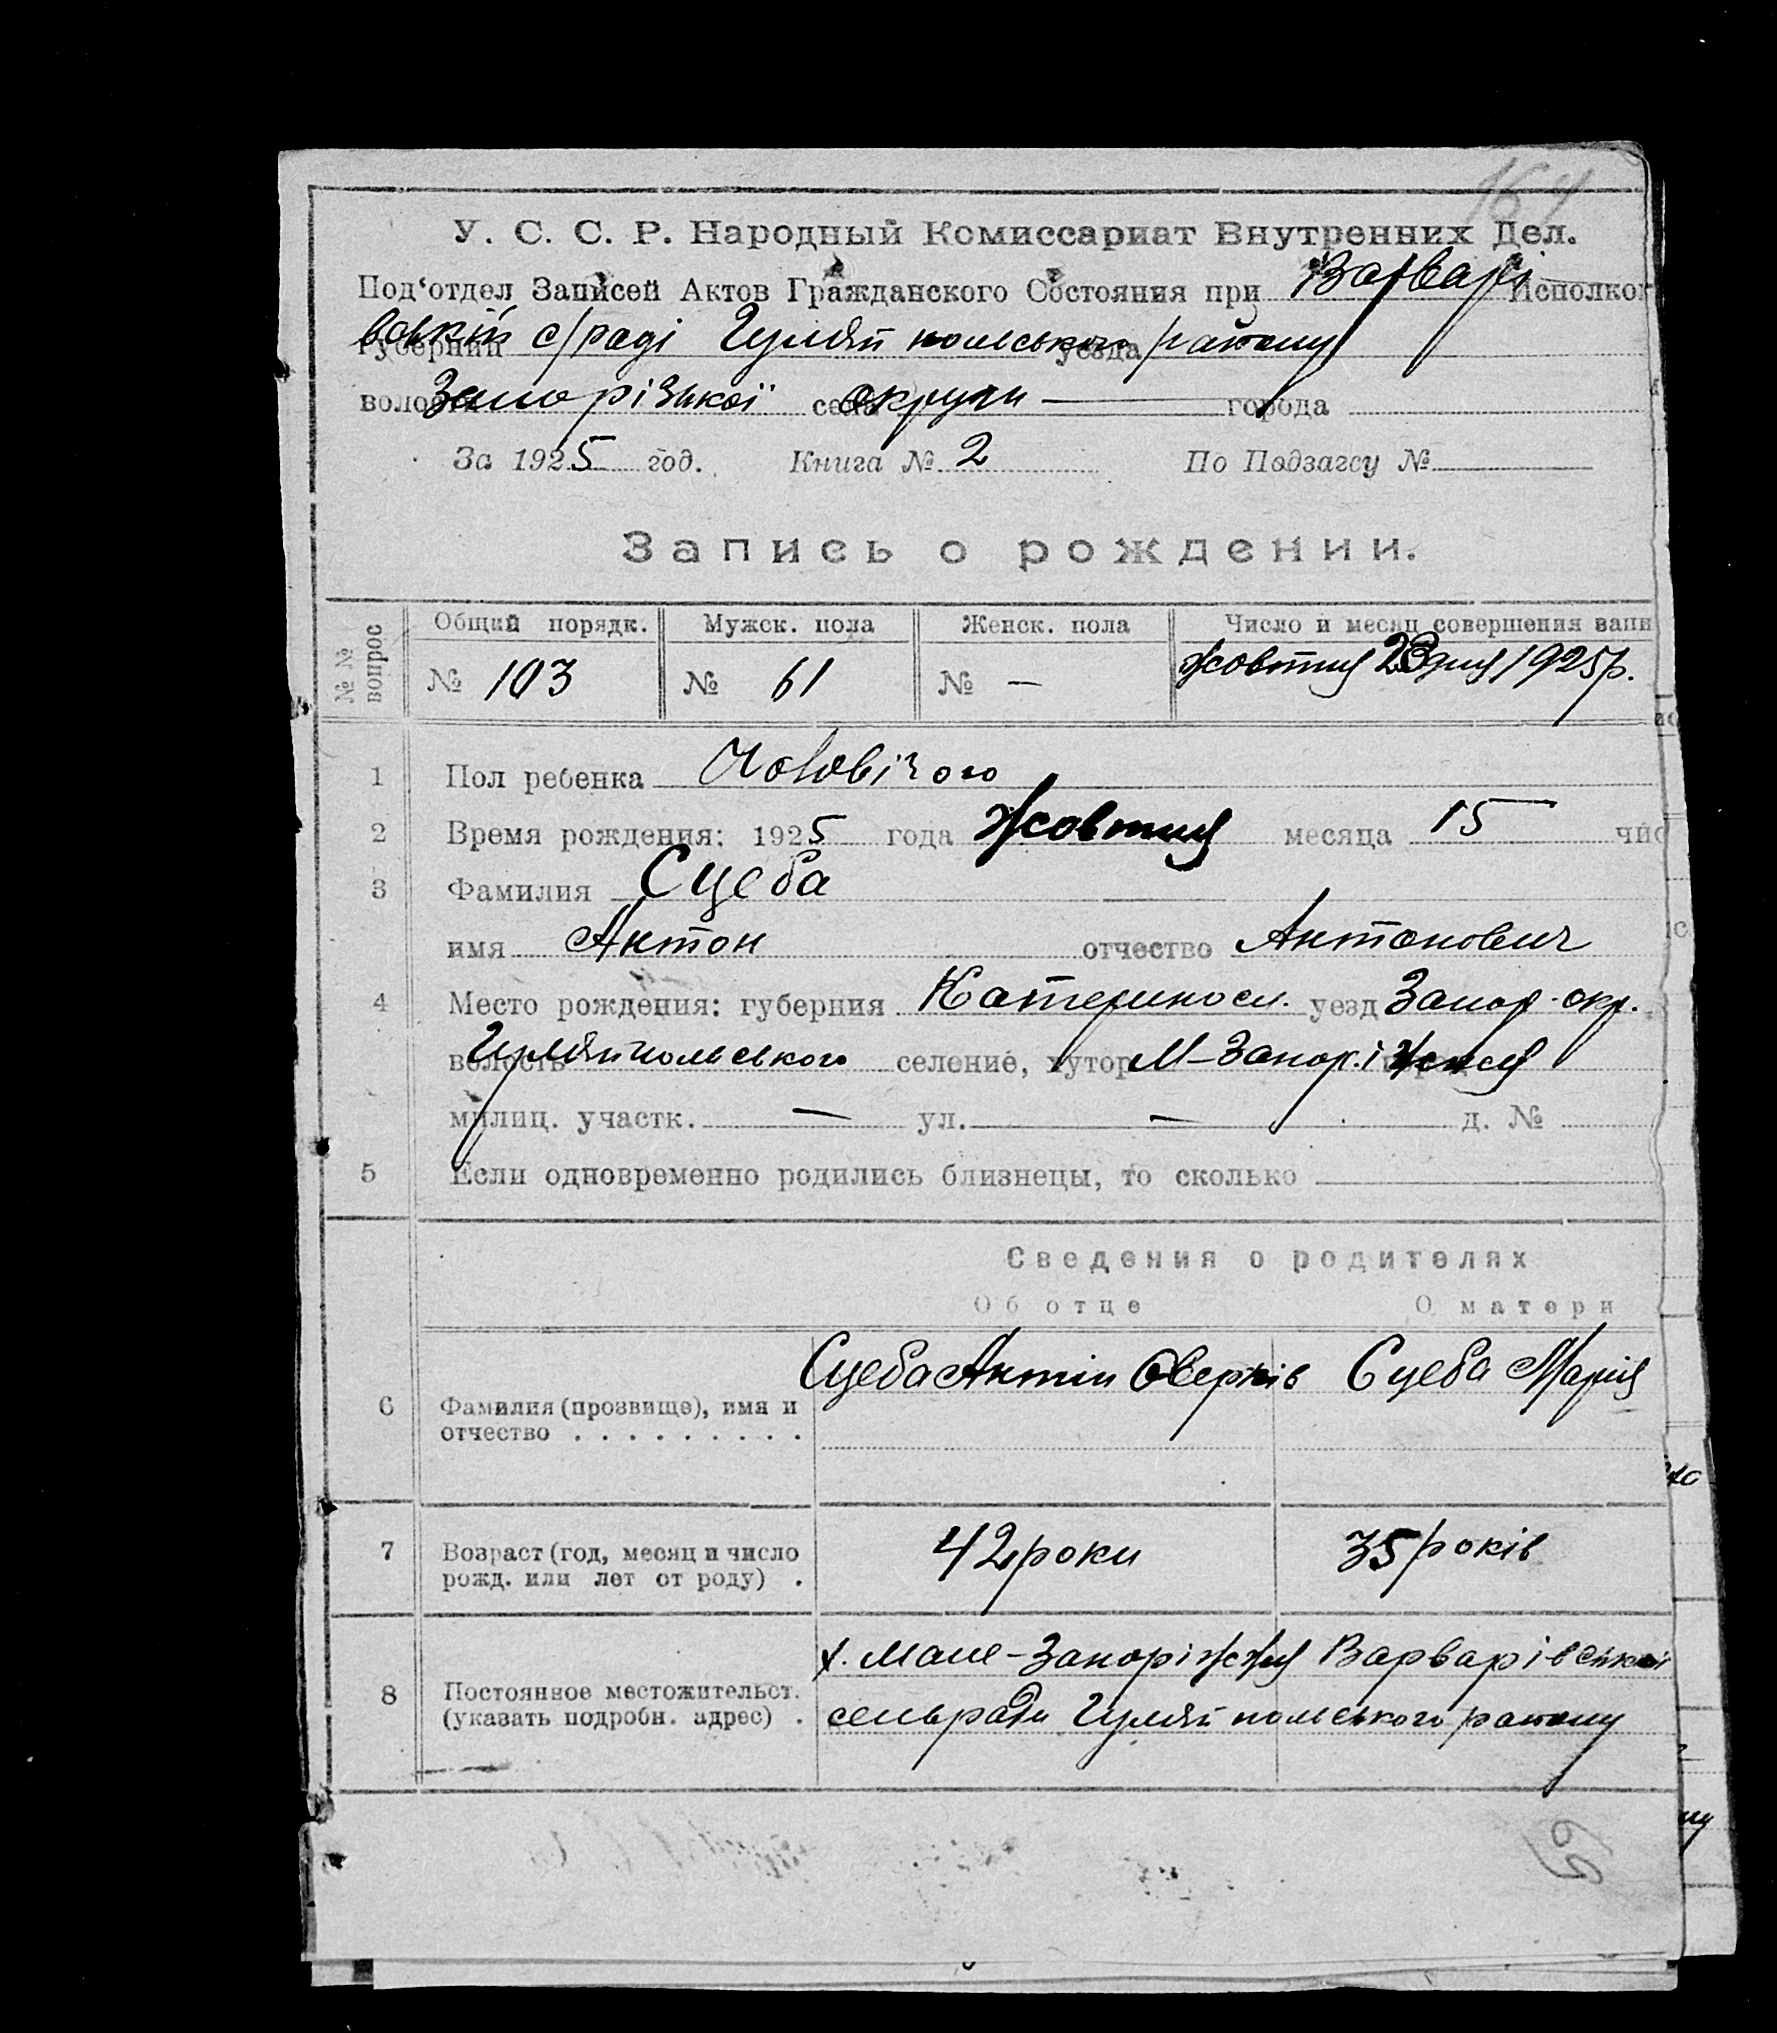 164
У. С. С. Р. Народный Комиссариат Внутренних Дел.
Под'отдел Записей Актов Гражданского Состояния при Варварі- Исполком
вській с/раді Гуляйпольського району
Губернии уезда
волости Запорізької села округи города
За 1925 год. Книга № 2 По Подзагсу №
Запись о рождении.
№№ вопрос Общий порядк. Мужск. пола Женск. пола Число и месяц совершения запи
№ 103 № 61 № — жовтня 28 дня 1925 р.
1 Пол ребенка Чоловічого
2 Время рождения: 1925 года Жовтня месяца 15 чис
3 Фамилия Сцеба
имя Антон отчество Антонович
4 Место рождения: губерния Катериносл. уезд Запор. окр.
волость Гуляйпольського селение, хутор М-Запоріжжя
милиц. участк. — ул. — д. №
5 Если одновременно родились близнецы, то сколько
Сведения о родителях
Об отце О матери
6 Фамилия (прозвище), имя и отчество Сцеба Антін Оверків Сцеба Марія
7 Возраст (год, месяц и число рожд. или лет от роду) 42 роки 35 років
8 Постоянное местожительст. (указать подробн. адрес) х. Мале-Запоріжжя Варварівської
сельради Гуляйпольського району
69